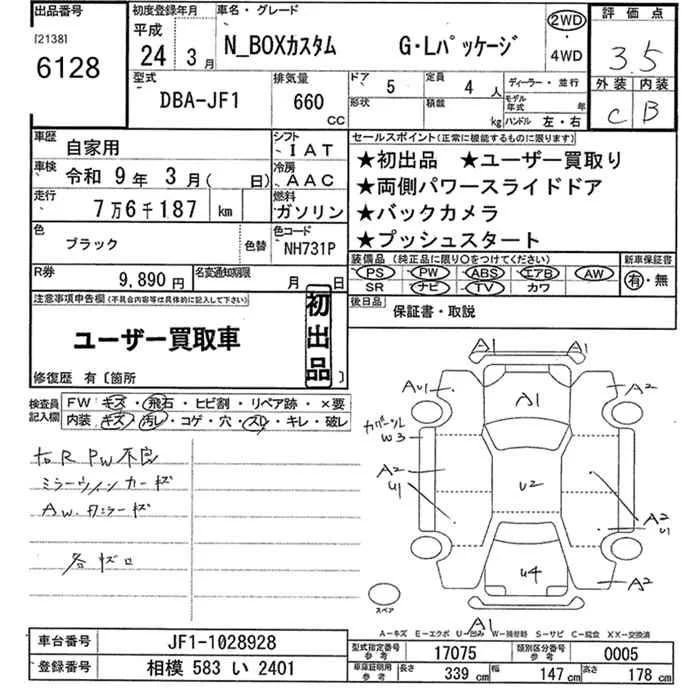 出品番号
[2138]
6128
初度登録年月
平成
24年 3月
車名・グレード
N_BOXカスタム G・Lパッケージ
2WD
4WD
評価点
3.5
外装 内装
C B
型式
DBA-JF1
排気量
660
CC
ドア
5
定員
4人
形状
積載
kg
ディーラー・並行
モデル年式
年
ハンドル 左・右
車歴
自家用
シフト
IAT
車検
令和 9年 3月( 日)
冷房
AAC
走行
7万6千187 km
燃料
ガソリン
色
ブラック
色替
色コード
NH731P
R券
9,890円
名変通知期限
月 日
セールスポイント(正常に機能するものに限ります)
★初出品 ★ユーザー買取り
★両側パワースライドドア
★バックカメラ
★プッシュスタート
装備品(純正品に限り○をつけてください)
PS PW ABS エアB AW
SR ナビ TV カワ
新車保証書
有・無
後日品
保証書・取説
注意事項申告欄(不具合内容等は具体的に記入して下さい)
ユーザー買取車
初出品
修復歴 有〔箇所 〕
検査員記入欄
FW キズ・飛石・ヒビ割・リペア跡・×要
内装 キズ・汚レ・コゲ・穴・スレ・キレ・破レ
右R PW不良
ミラーウィンカーキズ
AW.カラーキズ
各キズ凹
A1 A1
AU1
A2
A1
W3
A2
U1
U2
A2
U1
U4
A2
A1
スペア
A-キズ E-エクボ U-凹み W-補修跡 S-サビ C-腐食 XX-交換済
車台番号
JF1-1028928
登録番号
相模 583 い 2401
型式指定番号
参考
17075
類別区分番号
参考
0005
車庫証明用
参考
長さ
339 cm
幅
147 cm
高さ
178 cm